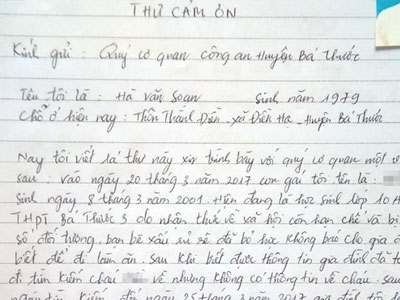 THƯ CẢM ƠN
Kính gửi : Quý cơ quan công an Huyện Bá Thước
Tên tôi là : Hà Văn Soan Sinh năm 1979
Chỗ ở hiện nay : Thôn Thành Điền _ xã Điền Hạ _ Huyện Bá Thước
Nay tôi viết lá thư này xin trình bày với quý cơ quan một v
sau : vào ngày 20 tháng 3 năm 2017 con gái tôi tên là :
Sinh ngày 8 tháng 3 năm 2001. Hiện đang là học sinh lớp 10A
THPT Bá Thước 3 do nhận thức về xã hội còn hạn chế và bị
số đối tượng, bạn bè xấu rủ rê đã bỏ học không báo cho gia
biết để đi làm ăn. Sau khi biết được thông tin gia đình đã t
đi tìm kiếm cháu về nhưng không có thông tin về cháu. sau
ngày tìm kiếm đến ngày 25 tháng 3 năm 2017 gia đình tôi